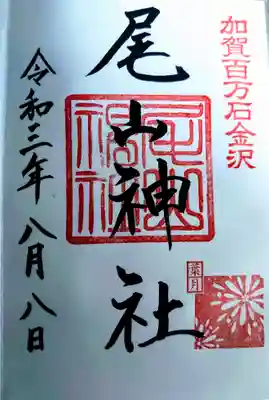 加賀百万石金沢
尾山神社
尾山神社
葉月
令和三年八月八日